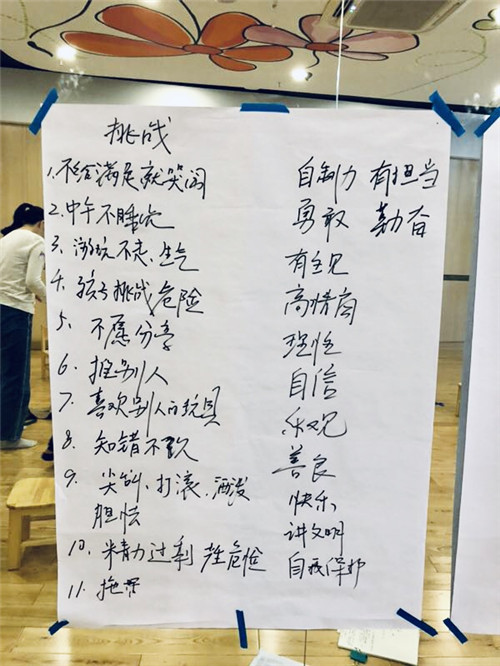 挑战
1.不给满足就哭闹
2.中午不睡觉
3.游玩不走、生气
4.孩子挑战危险
5.不愿分享
6.推别人
7.喜欢别人的玩具
8.知错不改
9.尖叫、打滚、洒泼
胆怯
10.精力过剩 危险
11.
自制力 有担当
勇敢 勤奋
有主见
高情商
理性
自信
乐观
善良
快乐
讲文明
自我保护